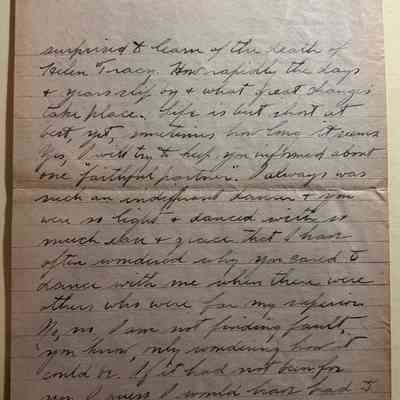 surprised to learn of the death of
Helen Tracy. How rapidly the days
+ years slip by + what great changes
take place. Life is but short at
best, yet, sometimes how long it seems
Yes, I will try to keep you informed about
one "faithful partner". I always was
such an indifferent dancer + you
were so light + danced with so
much ease + grace that I have
often wondered why you cared to
dance with me when there were
others who were far my superior
No, no, I am not finding fault,
you know, only wondering how it
could be. If it had not been for
you I guess I would have had to